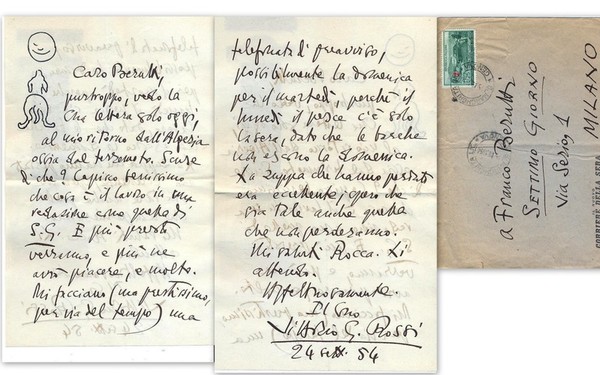 Caro Berutti,
purtroppo, vedo la
Sua lettera solo oggi,
al mio ritorno dall'Algeria
ossia dal terremoto. Scuse
di che? Capisco benissimo
che cosa è il lavoro in una
redazione come quella di
S.G. E più presto
verranno, e più ne
avrò piacere, e molto.
Mi facciano (ma prestissimo,
per via del tempo) una
telefonata di preavviso,
possibilmente la domenica
per il martedì, perché il
lunedì il pesce c'è solo
la sera, dato che le barche
non escono la domenica.
La zuppa che hanno perduto
era eccellente, spero che
sia tale anche quella
che non perderanno.
Mi saluti Rocca. Li
attendo.
Affettuosamente.
Il Suo
Vittorio G. Rossi
24 sett. 54
a Franco Berutti
SETTIMO GIORNO
Via Senio, 1
MILANO
CORRIERE DELLA SERA